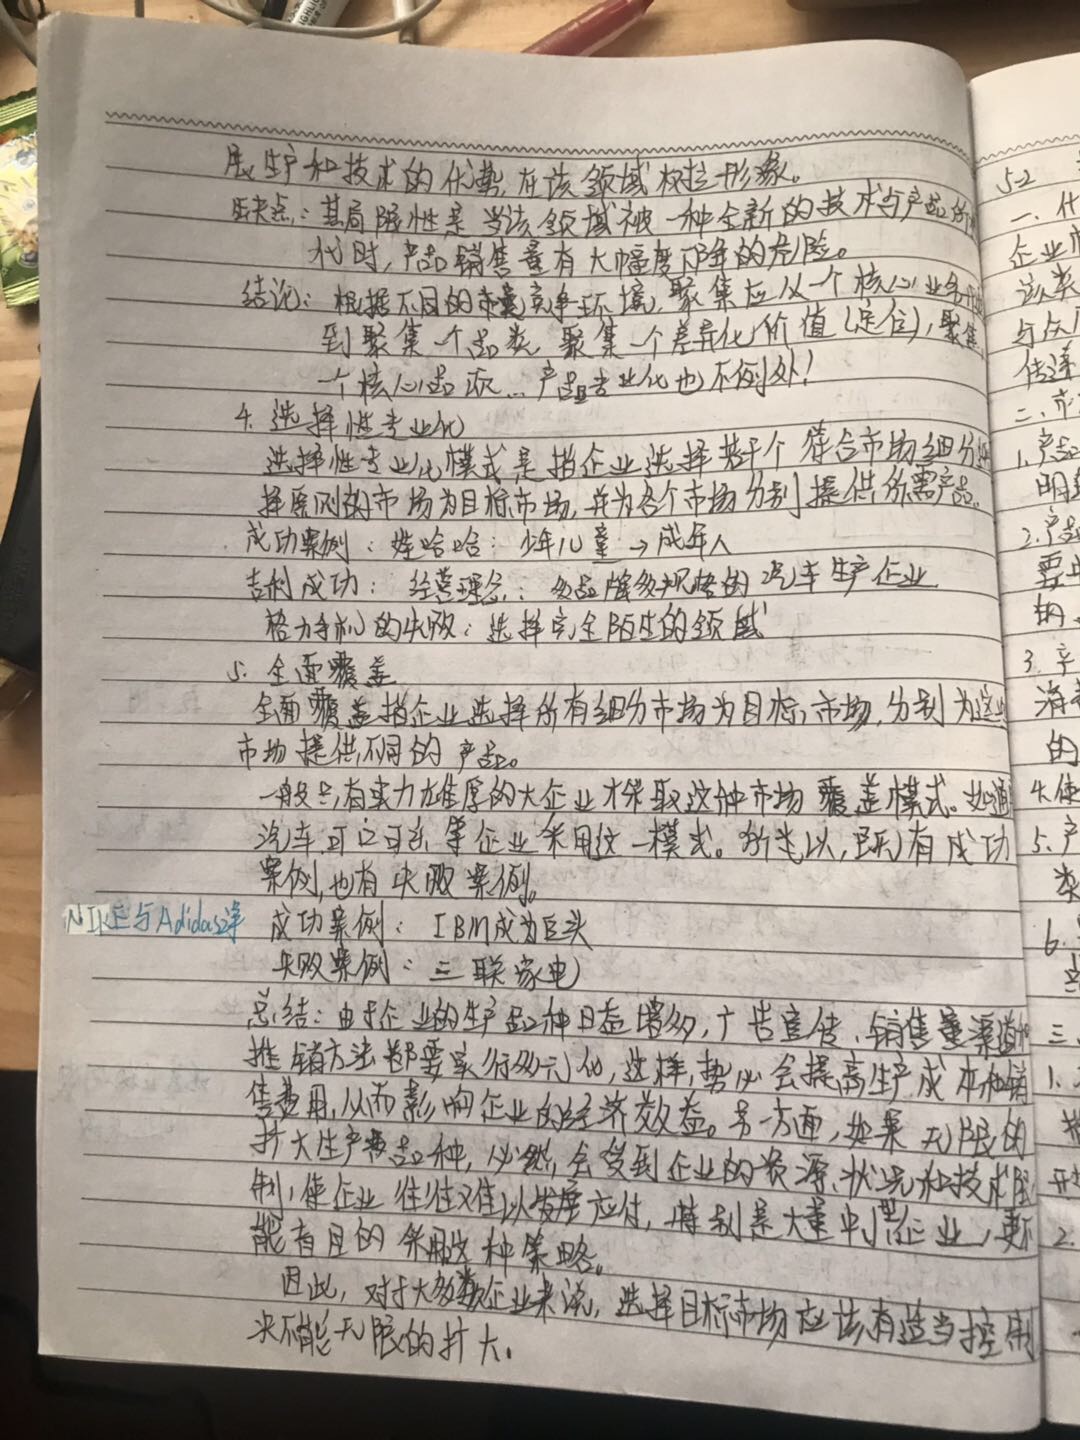 展生产和技术的优势,在该领域树立形象。
缺点:其局限性是当该领域被一种全新的技术与产品所
代时,产品销售量有大幅度下降的危险。
结论:根据不同的市场竞争环境,聚集应从一个核心业务
到聚集一个品类,聚集一个差异化价值(定位),聚集
一个核心品项…产品专业化也不例外!
4.选择性专业化
选择性专业化模式是指企业选择若干个符合市场细分
择原则的市场为目标市场,并为各个市场分别提供所需产品。
成功案例:娃哈哈:少年儿童→成年人
吉利成功:经营理念:多品牌多规格的汽车生产企业
格力手机的失败:选择完全陌生的领域
5.全面覆盖
全面覆盖指企业选择所有细分市场为目标市场,分别为这些
市场提供不同的产品。
一般只有实力雄厚的大企业才采取这种市场覆盖模式。如通
汽车,可口可乐等企业采用这一模式。所以,既有成功
案例,也有失败案例。
NIKE与Adidas
成功案例:IBM成为巨头
失败案例:三联家电
总结:由于企业的生产品种日益增多,广告宣传、销售渠道和
推销方法都要实行多元化,这样,势必会提高生产成本和销
售费用,从而影响企业的经济效益。另一方面,如果无限的
扩大生产品种,必然会受到企业的资源、状况和技术限
制,使企业往往难以发展应付,特别是大量中小型企业,更不
能盲目的采用这种策略。
因此,对于大多数企业来说,选择目标市场应该有适当控制
决不能无限的扩大。
5-2
一、
企业
该类
与
传递
二、市
1.产品
明
2.产品
要
的
3.
消费
的
4.使
5.产
类
6.
三、
1.
2.